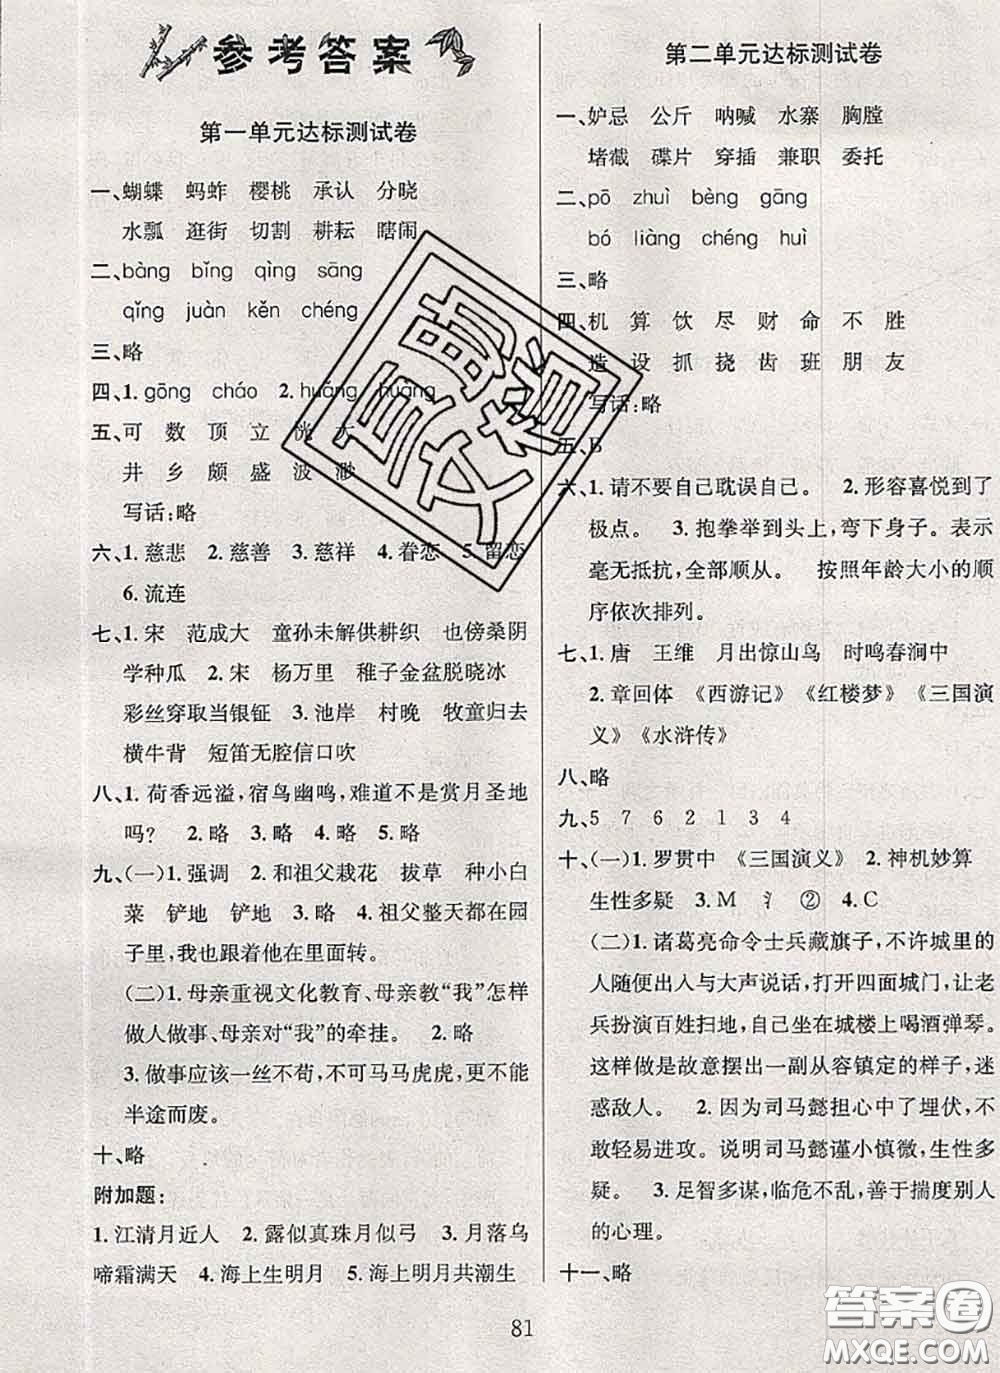 参考答案
第一单元达标测试卷
一、蝴蝶 蚂蚱 樱桃 承认 分晓
水瓢 逛街 切割 耕耘 瞎闹
二、bàng bǐng qìng sāng
qǐng juàn kěn chéng
三、略
四、1. gōng cháo 2. huáng huǎng
五、可 数 顶 立
井 乡 颇 盛 波 渺
写话:略
六、1. 慈悲 2. 慈善 3. 慈祥 4. 眷恋 5. 留恋
6. 流连
七、1. 宋 范成大 童孙未解供耕织 也傍桑阴
学种瓜 2. 宋 杨万里 稚子金盆脱晓冰
彩丝穿取当银钲 3. 池岸 村晚 牧童归去
横牛背 短笛无腔信口吹
八、1. 荷香远溢,宿鸟幽鸣,难道不是赏月圣地
吗? 2. 略 3. 略 4. 略 5. 略
九、(一)1. 强调 2. 和祖父栽花 拔草 种小白
菜 铲地 铲地 3. 略 4. 祖父整天都在园
子里,我也跟着在里面转。
(二)1. 母亲重视文化教育、母亲教“我”怎样
做人做事、母亲对“我”的牵挂。 2. 略
3. 做事应该一丝不苟,不可马马虎虎,更不能
半途而废。
十、略
附加题:
1. 江清月近人 2. 露似真珠月似弓 3. 月落乌
啼霜满天 4. 海上生明月 5. 海上明月共潮生
第二单元达标测试卷
一、妒忌 公斤 呐喊 水寨 胸膛
堵截 碟片 穿插 兼职 委托
二、pō zhuì bèng gāng
bó liàng chéng huì
三、略
四、机 算 饮 尽 财 命 不 胜
造 设 抓 挠 齿 班 朋 友
写话:略
五、B
六、1. 请不要自己耽误自己。 2. 形容喜悦到了
极点。 3. 抱拳举到头上,弯下身子。表示
毫无抵抗,全部顺从。 按照年龄大小的顺
序依次排列。
七、1. 唐 王维 月出惊山鸟 时鸣春涧中
2. 章回体 《西游记》《红楼梦》《三国演
义》《水浒传》
八、略
九、5 7 6 2 1 3 4
十、(一)1. 罗贯中 《三国演义》 2. 神机妙算
生性多疑 3. M 氵 ② 4. C
(二)1. 诸葛亮命令士兵藏旗子,不许城里的
人随便出入与大声说话,打开四面城门,让老
兵扮演百姓扫地,自己坐在城楼上喝酒弹琴。
这样做是故意摆出一副从容镇定的样子,迷
惑敌人。 2. 因为司马懿担心中了埋伏,不
敢轻易进攻。说明司马懿谨小慎微,生性多
疑。 3. 足智多谋,临危不乱,善于揣度别人
的心理。
十一、略
81
答案圈
MXQE.COM